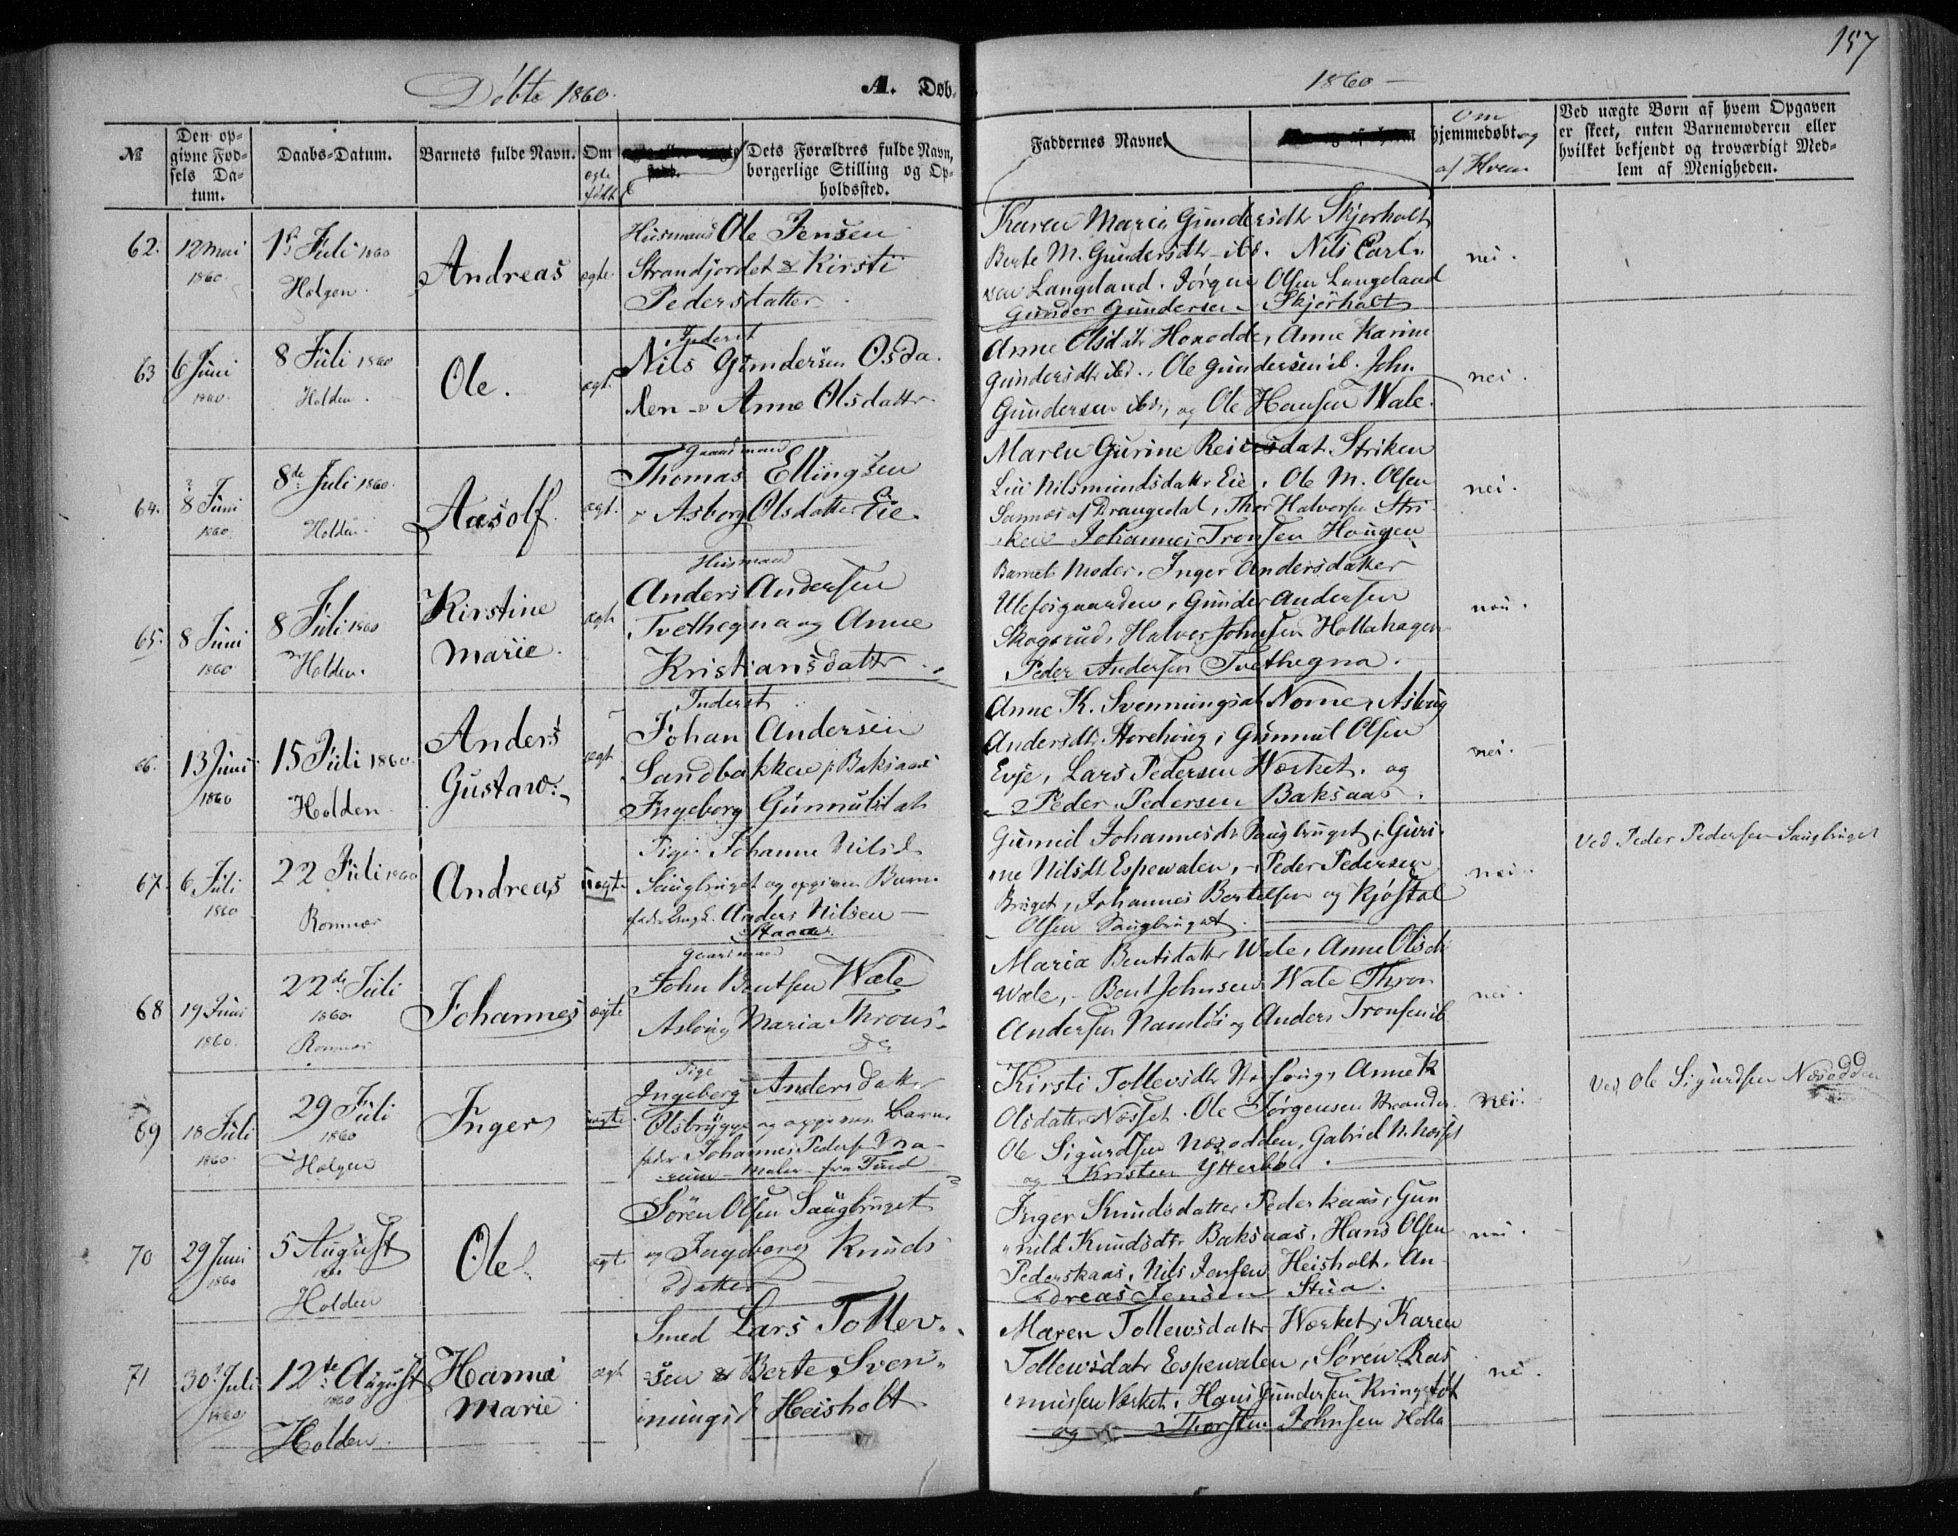 157
Døbte 1860.
A. Døb-
1860 -
No
Den op-
givne Fød-
sels Da-
tum.
Daabs-Datum.
Barnets fulde Navn.
Om
ægte
født
Dets Forældres fulde Navn,
borgerlige Stilling og Op-
holdssted.
Faddernes Navne
om
hjemmedøbt og
af Hvem
Ved uægte Børn af hvem Opgaven
er skeet, enten Barnemoderen eller
hvilket bekjendt og troværdigt Med-
lem af Menigheden.
62.
12 Mai
1860
1st Juli 1860
Helgen.
Andreas
ægte
Husmand Ole Jensen
Strandjordet & Kirsti
Pedersdatter
Karen Maria Gundersdtr Skjørholt
Berte M. Gundersdtr ibd. Nils Carl-
sen Langeland. Jørgen Olsen Langeland
Gunder Gundersen Skjørholt
nei.
63
6 Juni
1860.
8 Juli 1860
Holden.
Ole.
ægt.
Inderst
Nils Gundersen Osda-
len & Anne Olsdattr.
Anne Olsdatr Honodde, Anne Karine
Gundersdtr ibd., Ole Gundersen ib. John
Gundersen ibd, og Ole Hansen Wale.
nei.
64.
8 Juni
1860
8de Juli 1860.
Holden.
Aasolf.
ægt.
Gaardmand
Thomas Ellingsen
& Asborg Olsdatter Eie
Maren Gurine Reiersdat. Striken
Nilsmundsdattr Eie, Ole M. Olsen
Sannes af Drangedal, Thor Halvorsen Stri-
ken Johannes Tronsen Haugen
nei.
65.
8 Juni
1860
8 Juli 1860
Holden.
Kirstine
Marie.
ægt.
Husmand
Anders Andersen
Tvethegna og Anne
Kristiansdattr
Barnets Moder. Inger Andersdatter
Ulefosgaarden, Gunder Andersen
Skogsrud, Halvor Johnsen Hollahagen
Peder Andersen Tvethegna.
nei.
66.
13 Juni
1860
15 Juli 1860.
Holden
Anders
Gustav.
ægt
Inderst
Johan Andersen
Sandbakken p. Baksaas
Ingeborg Gunnulsdatr
Anne K. Svenningsdtr Nome, Aslaug
Andersdtr Storehoug, Gunnul Olsen
Evje, Lars Pedersen Værket. og
Peder Pedersen Baksaas.
nei.
67.
6. Juli
1860
22 Juli 1860
Romnæs
Andreas
uægte
Pige Johanne Nilsd.
Saugbruget og opgiven Barne-
fader Ungk. Anders Nilsen
Staaa
Gunnild Johannesdtr Saugbruget, Guri-
ne Nilsdt Espevalen, Peder Pedersen
Bruget, Johannes Bertelsen og Kjøstol
Olsen Saugbruget.
nei.
Ved Peder Pedersen Saugbruget
68
19 Juni
1860.
22de Juli
1860
Romnæs
Johannes
ægte
Gaardmand
John Bentsen Wale
Aslaug Maria Throns-
dr
Maria Bentsdatter Wale, Anne Olsdtr
Wale, Bent Johnsen Wale Thron
Andersen Namløs og Anders Tronsen ib
nei.
69
18 Juli
1860.
29 Juli
1860
Helgen
Inger
uægte
Pige
Ingeborg Andersdatter
Olsbrygge og opgiven Barne-
fader Johannes Pedersen
Maler fra Tind
Kirsti Tollevsdtr, Anne K
Olsdatter Næsset. Ole Jørgensen Strande
Ole Sigurdsen Næsodden, Gabriel N. Næsset
og Kristen Ytterbø.
nei.
Ved Ole Sigurdsen Næsodden
70
29 Juni
1860
5 August
1860
Holden
Ole
ægt
Søren Olsen Saugbruget
og Ingeborg Knuds
datter
Inger Knudsdatter Pederskaas, Gun-
nild Knudsdtr Baksaas, Hans Olsen
Pederskaas, Nils Jensen Heisholt. An-
dreas Jensen Stua.
nei.
71
30 Juli
1860
12te August
1860
Holden.
Hanna
Marie
ægt
Smed Lars Tollev-
sen & Berte Sven-
ningsd Heisholt
Maren Tollevsdattr Værket, Karen
Tollevsdatr Espevalen, Søren Ras-
mussen Værket, Hans Gundersen Ringstot
og Thorsten Johnsen Holla
nei.